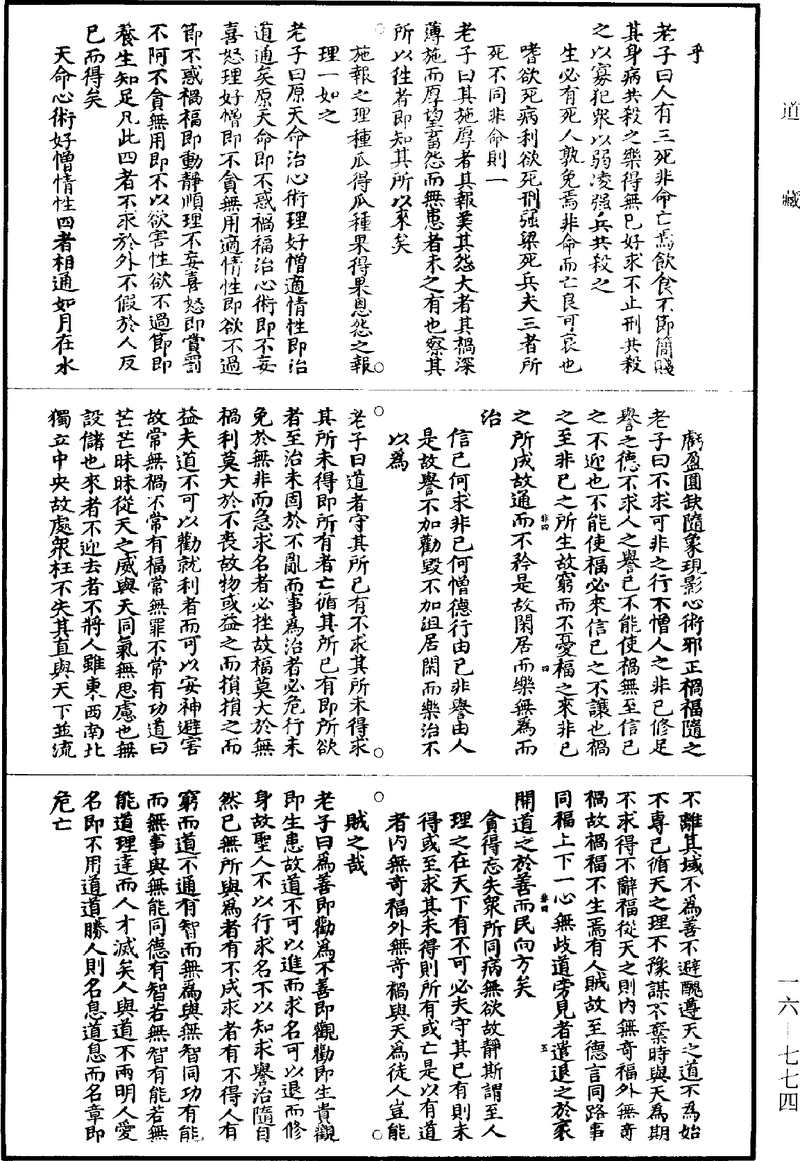 道藏
乎
老子曰人有三死非命亡焉飲食不節簡賤
其身病共殺之樂得無已好求不止刑共殺
之以寡犯衆以弱凌强兵共殺之
生必有死人孰免焉非命而亡良可哀也
嗜欲死病利欲死刑强梁死兵夫三者所
死不同非命則一
老子曰其施厚者其報美其怨大者其禍深
薄施而厚望畜怨而無患者未之有也察其
所以往者即知其所以來矣
施報之理種瓜得瓜種果得果恩怨之報
理一如之
老子曰原天命治心術理好憎適情性即治
道通矣原天命即不惑禍福治心術即不妄
喜怒理好憎即不貪無用適情性即欲不過
節不惑禍福即動靜順理不妄喜怒即賞罰
不阿不貪無用即不以欲害性欲不過節即
養生知足凡此四者不求於外不假於人反
已而得矣
天命心術好憎情性四者相通如月在水
虧盈圓缺隨象現影心術邪正禍福隨之
老子曰不求可非之行不憎人之非已修足
譽之德不求人之譽已不能使禍無至信已
之不迎也不能使福必來信已之不讓也禍
之至非已之所生故窮而不憂福之來非已
之所成故通而不矜是故閑居而樂無爲而
治
信已何求非已何憎德行由已非譽由人
是故譽不加勸毀不加沮居閑而樂治不
以爲
老子曰道者守其所已有不求其所未得求
其所未得即所有者亡循其所已有即所欲
者至治未固於不亂而事爲治者必危行未
免於無非而急求名者必挫故福莫大於無
禍利莫大於不喪故物或益之而損損之而
益夫道不可以勸就利者而可以安神避害
故常無禍不常有福常無罪不常有功道曰
芒芒昧昧從天之威與天同氣無思慮也無
設儲也來者不迎去者不將人雖東西南北
獨立中央故處衆枉不失其直與天下並流
不離其域不爲善不避醜遵天之道不爲始
不專已循天之理不豫謀不棄時與天爲期
不求得不辭福從天之則内無奇福外無奇
禍故禍福不生焉有人賊故至德言同路事
同福上下一心無歧道旁見者遣退之於衺
開道之於善而民向方矣
貪得忘失衆所同病無欲故靜斯謂至人
理之在天下有不可必夫守其已有則未
得或至求其未得則所有或亡是以有道
者内無奇福外無奇禍與天爲徒人豈能
賊之哉
老子曰爲善即勸爲不善即觀勸即生責觀
即生患故道不可以進而求名可以退而修
身故聖人不以行求名不以知求譽治隨自
然已無所與爲者有不成求者有不得人有
窮而道不通有智而無爲與無智同功有能
而無事與無能同德有智若無智有能若無
能道理達而人才滅矣人與道不兩明人愛
名即不用道道勝人則名息道息而名章即
危亡
一六—七七四